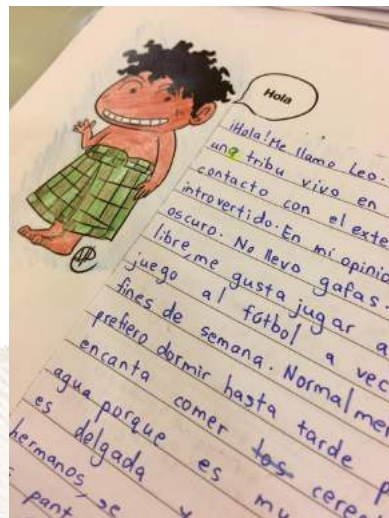 Hola
¡Hola! Me llamo Leo.
una tribu vivo en
contacto con el exte
introvertido. En mi opinio
oscuro. No llevo gafas
libre, me gusta jugar a
juego al fútbol a vec
fines de semana. Normalme
prefiero dormir hasta tarde p
encanta comer los cere
agua porque es mu
es delgada y
hermanos, se
pant